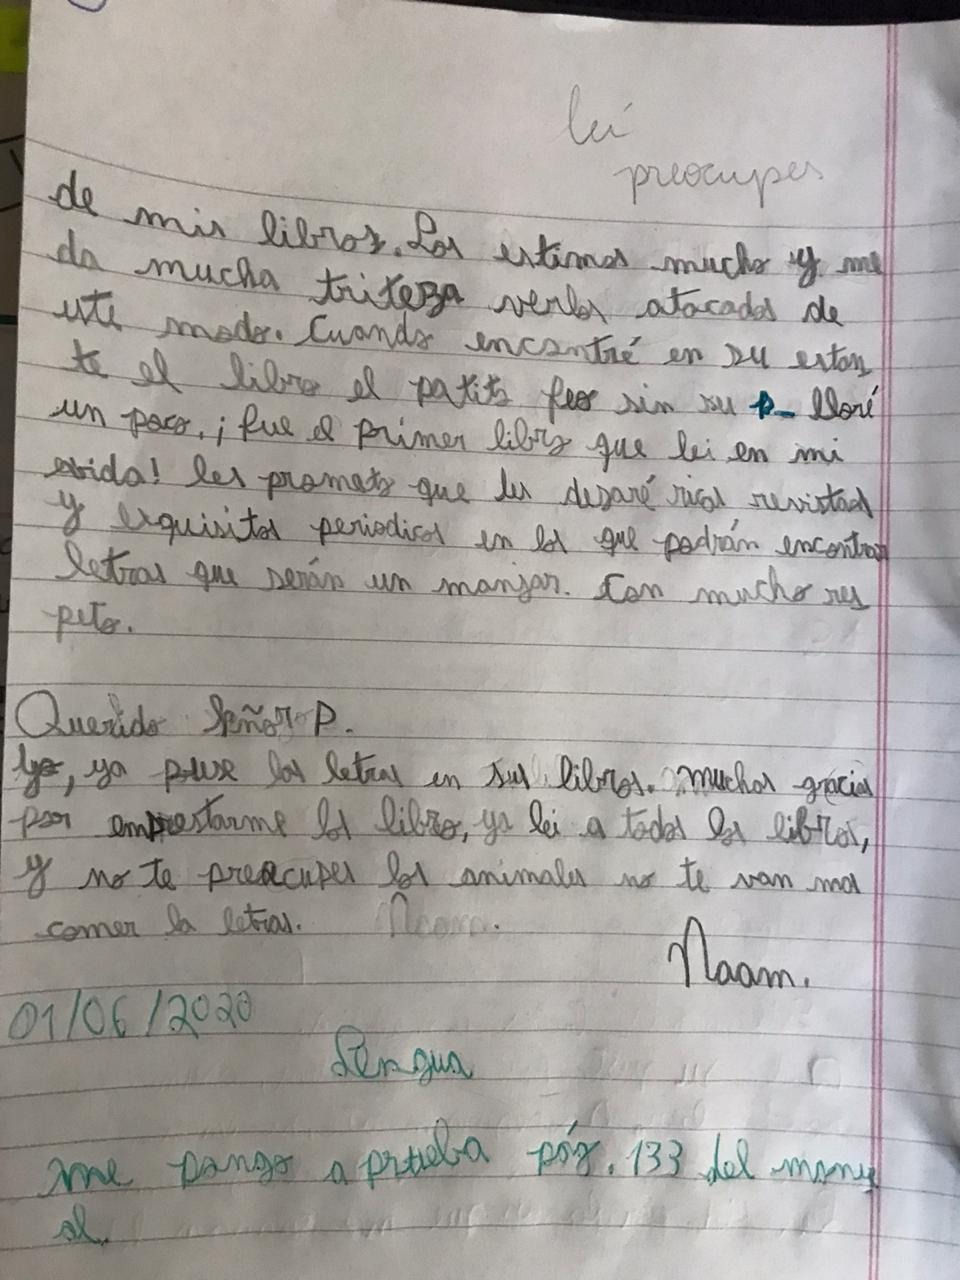 leí
preocupes
de mis libros. Los estimos mucho y me
da mucha triteza verlos atacados de
este modo. Cuando encontré en su estan
te el libro el patito feo sin su p_ lloré
un poco, ¡fue el primer libro que lei en mi
vida! les prometo que les dejaré ricas revistas
y exquisitos periodicos en los que podrán encontrar
letras que serán un manjar. Con mucho res
peto.
Querido Señor P.
yo, ya puse las letras en sus libros. muchas gracias
por emprestarme los libro, ya lei a todos los libros,
y no te preocupes los animales no te van mas
comer la letras. Naam.
Naam.
01/06/2020
Lengua
me pongo a prueba pág. 133 del manu
al.